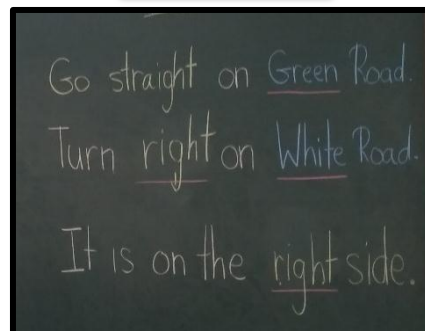 Go straight on Green Road.
Turn right on White Road.
It is on the right side.